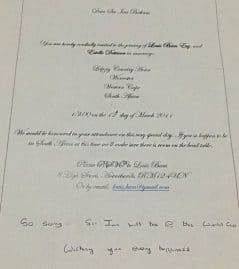 Dear Sir Ian Botham
You are hereby cordially invited to the joining of Louis Bunn Esq. and
in marriage.
Country House
Worcester
Western Cape
South Africa
on the of March 2011
We would be honoured in your attendance on this very special day. If you happen to be
in South Africa at this time we'll make sure there is room on the head table.
Please RSVP to Louis Bunn
8 High Street,
Or by email:
So sorry - Sir Ian will be @ the World Cup
Wishing you every happiness